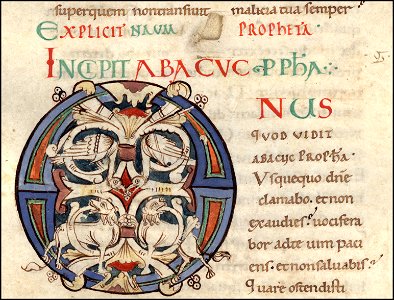 superquem nontransiuit malicia tua semper
EXPLICIT NAUM PROPHETA
INCIPIT ABACVC PPHA
O NUS
QUOD VIDIT
ABACVC PROPHA
Vsquequo dñe
clamabo. et non
exaudies. uocifera
bor adte uim paci
ens. et nonsaluabis.
Quare ostendisti